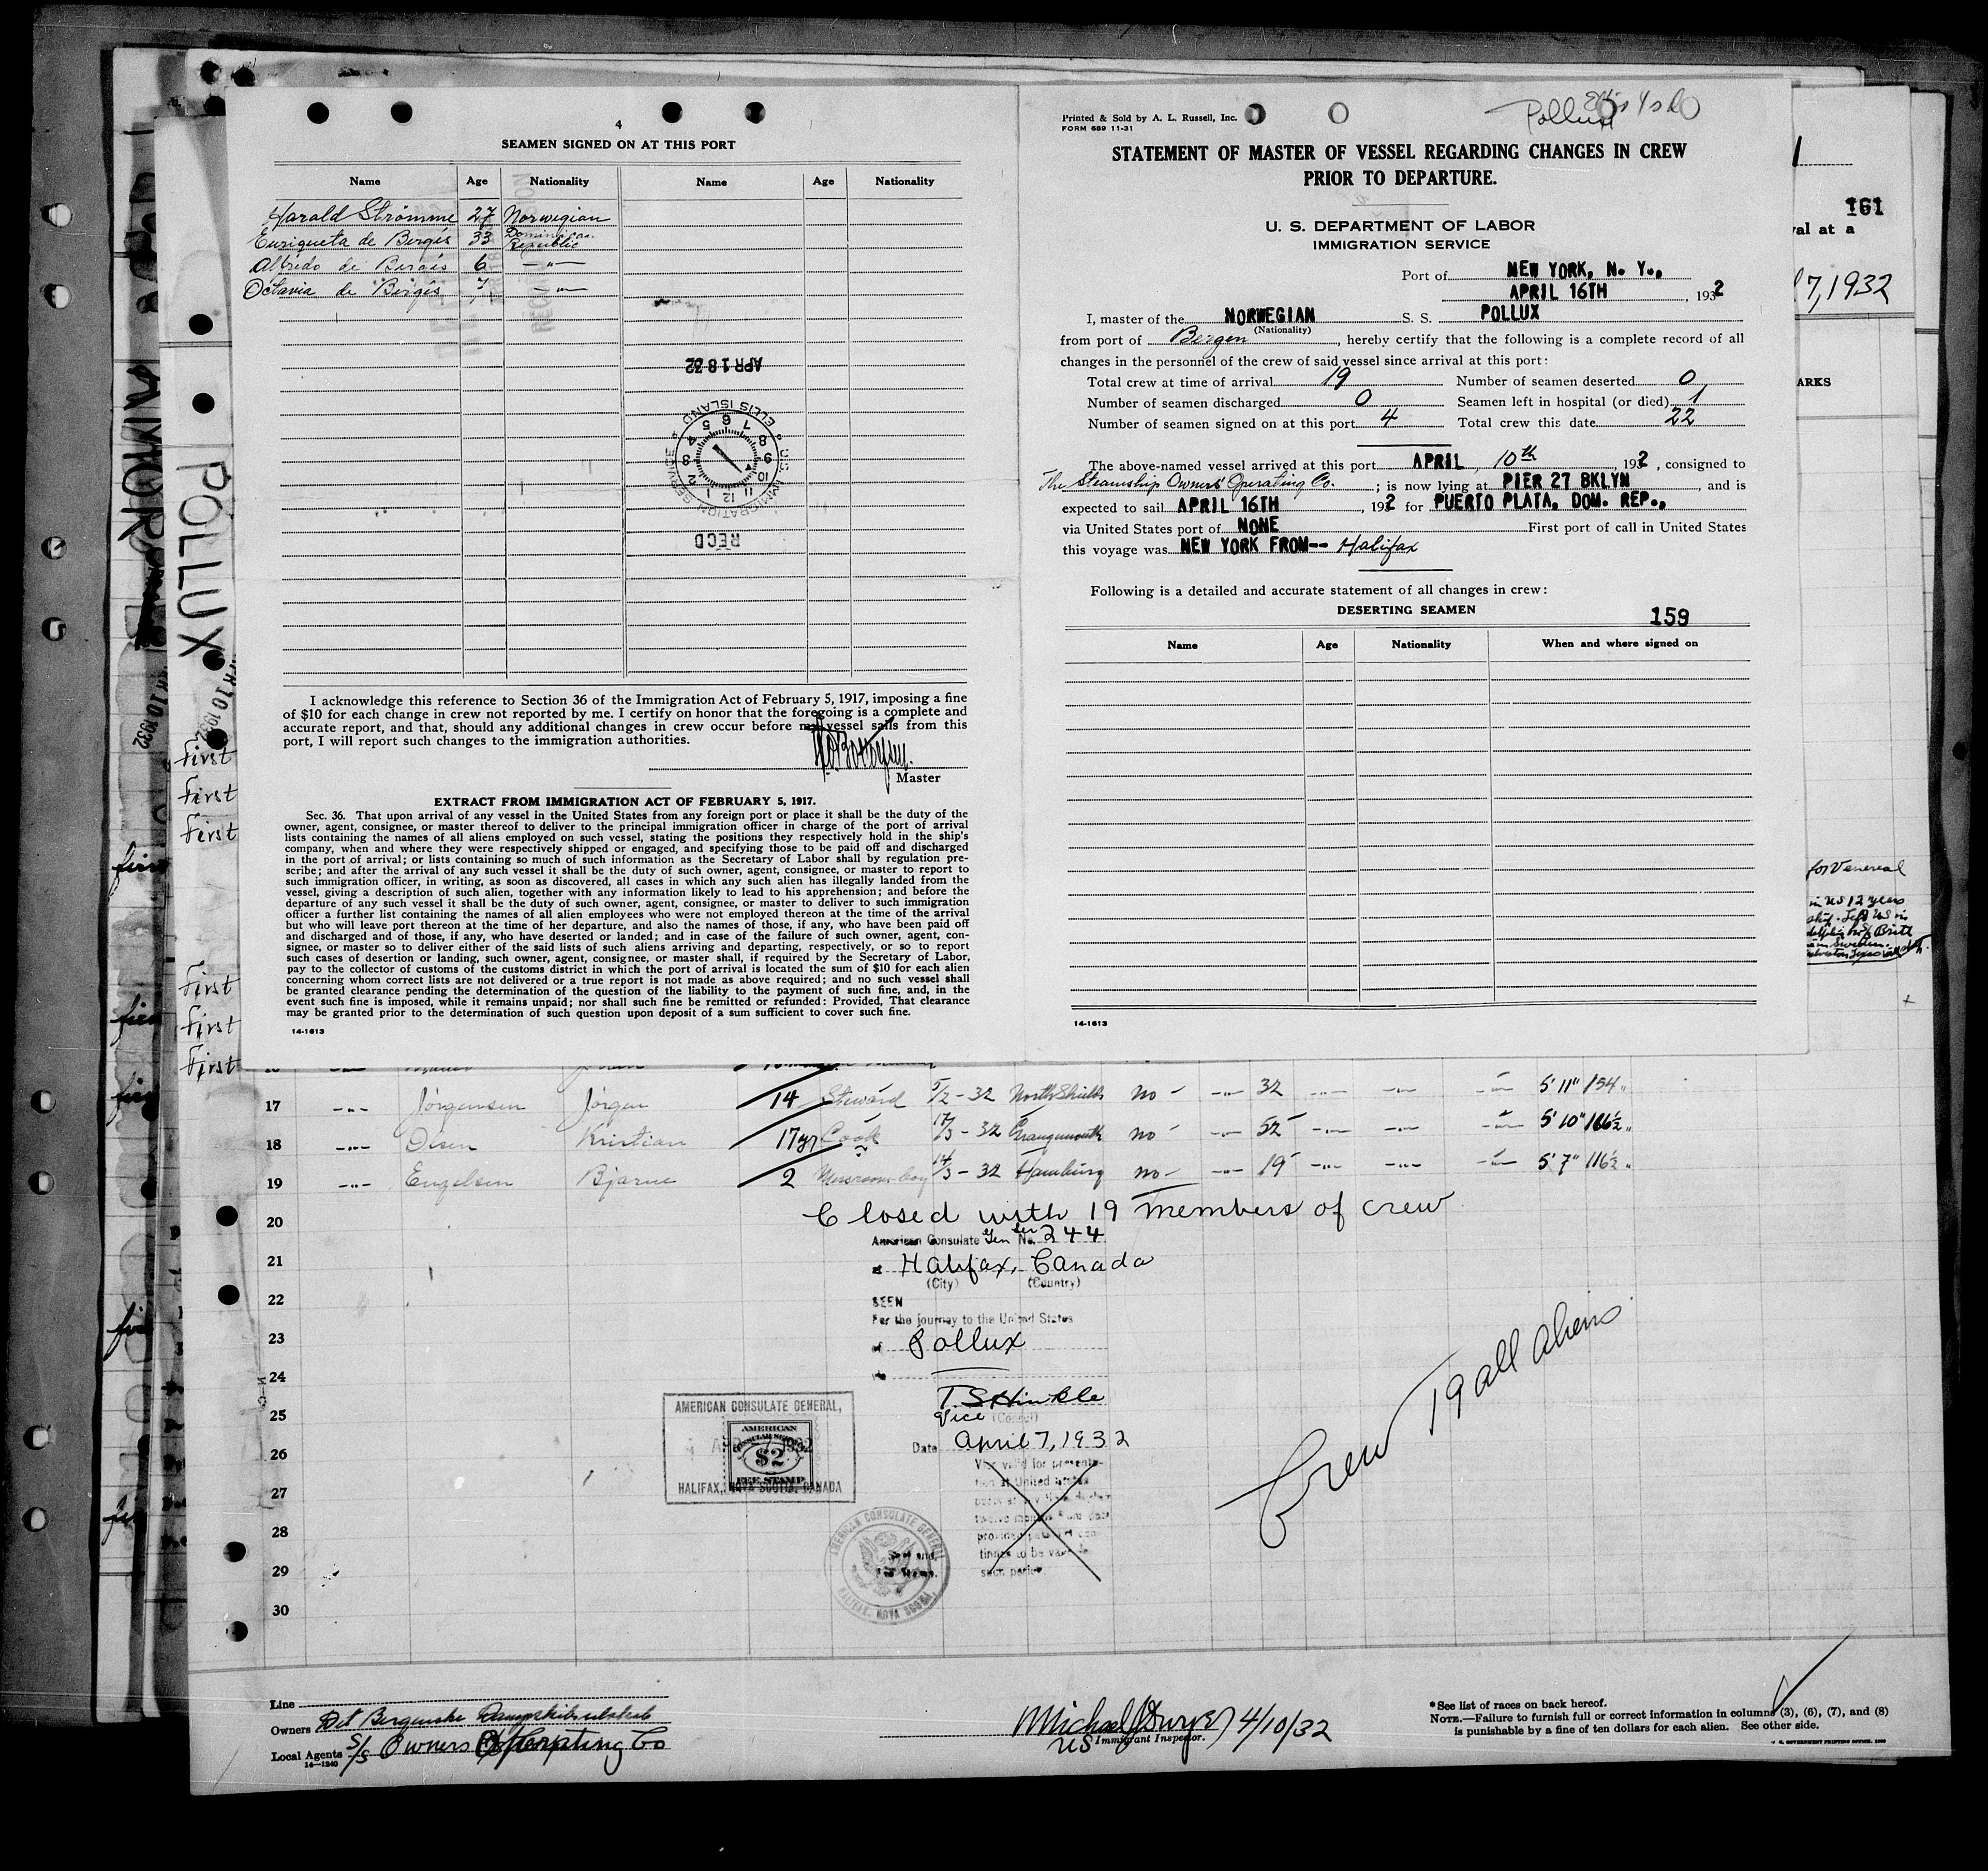 4
SEAMEN SIGNED ON AT THIS PORT
Name Age Nationality Name Age Nationality
Harald Strömme 27 Norwegian
Enriqueta de Bergés 33 Dominican Republic
Alfredo de Bergés 6 —"—
Octavia de Bergés 7 —"—
APR 18 32
U.S. IMMIGRATION SERVICE
ELLIS ISLAND
RECD
I acknowledge this reference to Section 36 of the Immigration Act of February 5, 1917, imposing a fine
of $10 for each change in crew not reported by me. I certify on honor that the foregoing is a complete and
accurate report, and that, should any additional changes in crew occur before my vessel sails from this
port, I will report such changes to the immigration authorities.
Master
EXTRACT FROM IMMIGRATION ACT OF FEBRUARY 5, 1917.
Sec. 36. That upon arrival of any vessel in the United States from any foreign port or place it shall be the duty of the
owner, agent, consignee, or master thereof to deliver to the principal immigration officer in charge of the port of arrival
lists containing the names of all aliens employed on such vessel, stating the positions they respectively hold in the ship's
company, when and where they were respectively shipped or engaged, and specifying those to be paid off and discharged
in the port of arrival; or lists containing so much of such information as the Secretary of Labor shall by regulation pre-
scribe; and after the arrival of any such vessel it shall be the duty of such owner, agent, consignee, or master to report to
such immigration officer, in writing, as soon as discovered, all cases in which any such alien has illegally landed from the
vessel, giving a description of such alien, together with any information likely to lead to his apprehension; and before the
departure of any such vessel it shall be the duty of such owner, agent, consignee, or master to deliver to such immigration
officer a further list containing the names of all alien employees who were not employed thereon at the time of the arrival
but who will leave port thereon at the time of her departure, and also the names of those, if any, who have been paid off
and discharged and of those, if any, who have deserted or landed; and in case of the failure of such owner, agent, con-
signee, or master so to deliver either of the said lists of such aliens arriving and departing, respectively, or so to report
such cases of desertion or landing, such owner, agent, consignee, or master shall, if required by the Secretary of Labor,
pay to the collector of customs of the customs district in which the port of arrival is located the sum of $10 for each alien
concerning whom correct lists are not delivered or a true report is not made as above required; and no such vessel shall
be granted clearance pending the determination of the question of the liability to the payment of such fine, and, in the
event such fine is imposed, while it remains unpaid; nor shall such fine be remitted or refunded: Provided, That clearance
may be granted prior to the determination of such question upon deposit of a sum sufficient to cover such fine.
14-1613
Printed & Sold by A. L. Russell, Inc.
FORM 689 11-31
Pollux
STATEMENT OF MASTER OF VESSEL REGARDING CHANGES IN CREW
PRIOR TO DEPARTURE.
U. S. DEPARTMENT OF LABOR
IMMIGRATION SERVICE
Port of NEW YORK, N. Y.,
APRIL 16TH, 1932
I, master of the NORWEGIAN S. S. POLLUX
(Nationality)
from port of Bergen, hereby certify that the following is a complete record of all
changes in the personnel of the crew of said vessel since arrival at this port:
Total crew at time of arrival 19 Number of seamen deserted 0
Number of seamen discharged 0 Seamen left in hospital (or died) 1
Number of seamen signed on at this port 4 Total crew this date 22
The above-named vessel arrived at this port APRIL 10th, 1932, consigned to
The Steamship Owners' Operating Co.; is now lying at PIER 27 BKLYN, and is
expected to sail APRIL 16TH, 1932 for PUERTO PLATA, DOM. REP.,
via United States port of NONE First port of call in United States
this voyage was NEW YORK FROM-- Halifax
Following is a detailed and accurate statement of all changes in crew:
DESERTING SEAMEN
159
Name Age Nationality When and where signed on
14-1613
161
val at a
7, 1932
ARKS
for Venereal
in US 12 years
POLLUX
First
First
First
First
First
First
17 -"- Jörgensen Jörgen 14 Steward 5/2-32 North Shields no -"- 32 -"- -"- -"- 5' 11" 154
18 -"- Olsen Kristian 17yr Cook 17/3-32 Grangemouth no -"- 52 -"- -"- -"- 5' 10" 166½
19 -"- Engelsen Bjarne 2 Messroom boy 14/3-32 Hamburg no -"- 19 -"- -"- -"- 5' 7" 116½
20
Closed with 19 members of crew
American Consulate Gen No. 244
21
at Halifax, Canada
(City) (Country)
22
SEEN
For the journey to the United States
23
of Pollux
24
via
25
T. S. Hinkle
Vice (Consul)
26
Date April 7, 1932
27
28
29
30
AMERICAN CONSULATE GENERAL,
AMERICAN
CONSULAR SERVICE
$2
FEE STAMP
HALIFAX, NOVA SCOTIA, CANADA
AMERICAN CONSULATE GENERAL
HALIFAX, NOVA SCOTIA
Crew 19 all aliens
Line
Owners Det Bergenske Dampskibsselskab
Local Agents S/S Owners Operating Co
14-1240
Michael J Dwyer 4/10/32
US Immigrant Inspector.
*See list of races on back hereof.
NOTE.—Failure to furnish full or correct information in columns (3), (6), (7), and (8)
is punishable by a fine of ten dollars for each alien. See other side.